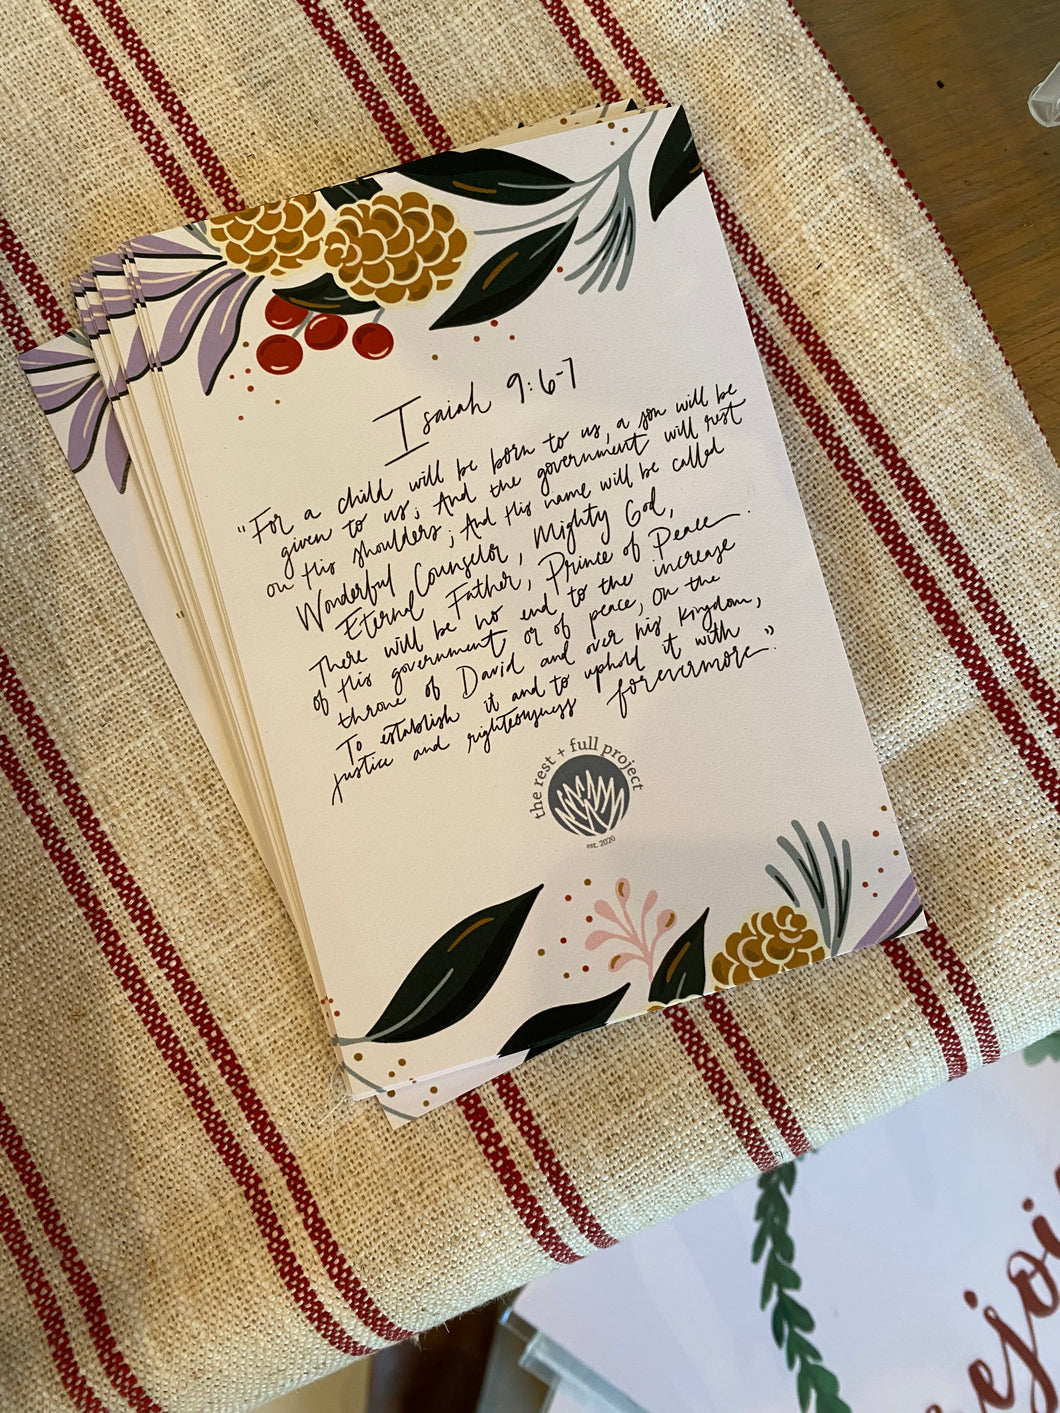 Isaiah 9:6-7
"For a child will be born to us, a son will be
given to us; And the government will rest
on His shoulders; And His name will be called
Wonderful Counselor, Mighty God,
Eternal Father, Prince of Peace.
There will be no end to the increase
of His government or of peace, on the
throne of David and over his kingdom,
To establish it and to uphold it with
justice and righteousness forevermore."
the rest + full project
est. 2020
ejoi